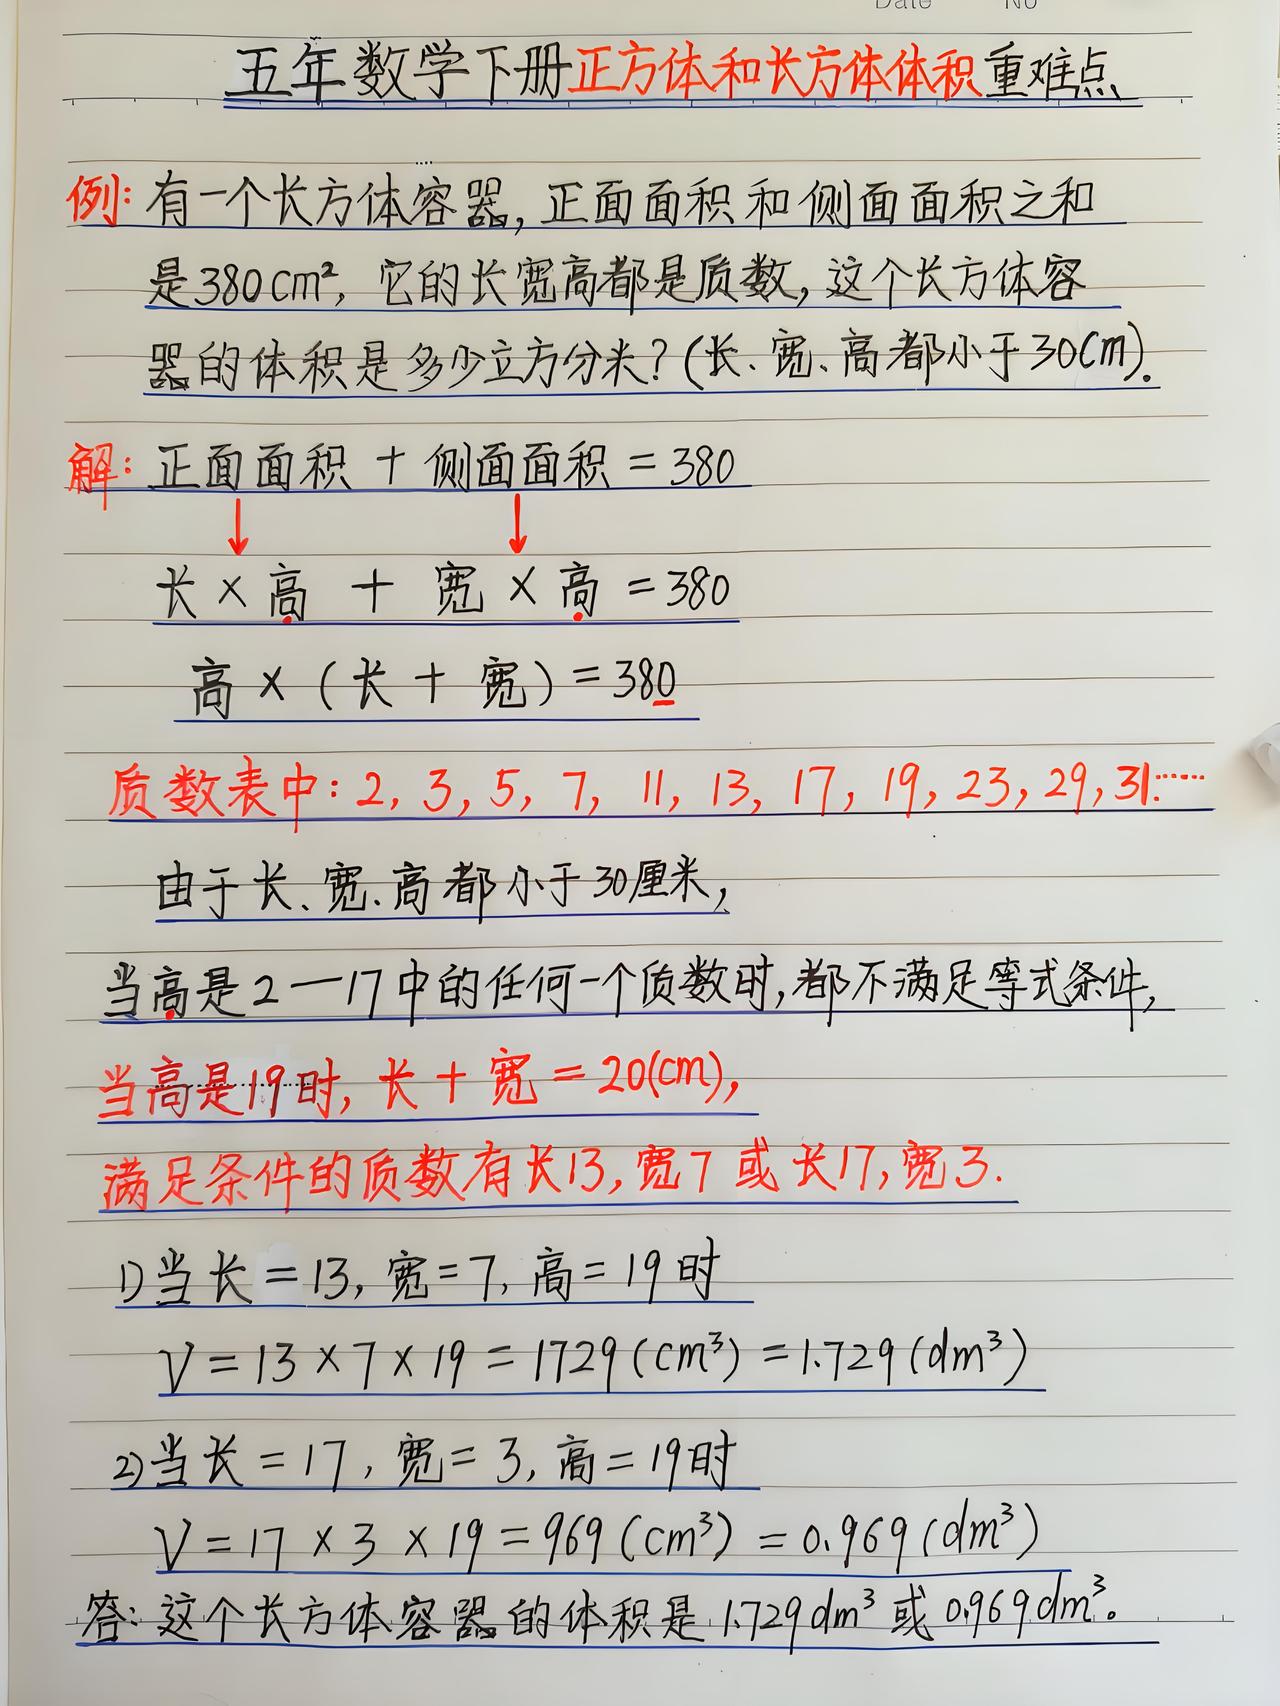 Date No
五年数学下册正方体和长方体体积重难点
例:有一个长方体容器,正面面积和侧面面积之和
是380cm²,它的长宽高都是质数,这个长方体容
器的体积是多少立方分米?(长、宽、高都小于30cm).
解:正面面积 + 侧面面积 = 380
长 × 高 + 宽 × 高 = 380
高 × (长 + 宽) = 380
质数表中: 2, 3, 5, 7, 11, 13, 17, 19, 23, 29, 31......
由于长、宽、高都小于30厘米,
当高是2—17中的任何一个质数时,都不满足等式条件,
当高是19时,长 + 宽 = 20(cm),
满足条件的质数有长13,宽7或长17,宽3.
1)当长 = 13,宽 = 7,高 = 19时
V = 13 × 7 × 19 = 1729(cm³) = 1.729(dm³)
2)当长 = 17,宽 = 3,高 = 19时
V = 17 × 3 × 19 = 969(cm³) = 0.969(dm³)
答:这个长方体容器的体积是1.729dm³或0.969dm³。